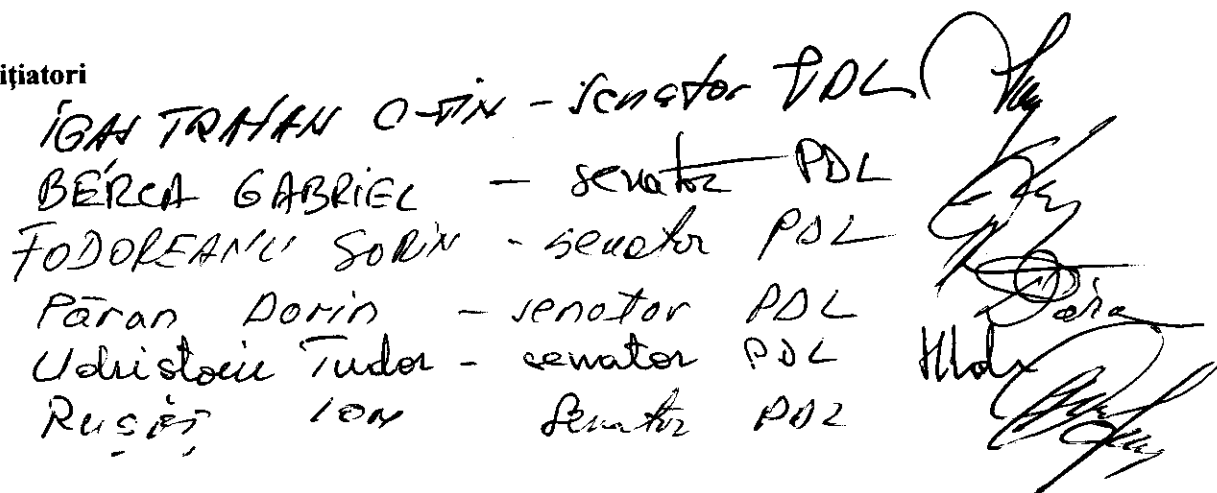 ițiatori
IGAȘ TRAIAN C-TIN - senator PDL
BÉRCA GABRIEL - senator PDL
FODOREANU SORIN - senator PDL
Pāran Dorin - senator PDL
Udriștoiu Tudor - senator PDL
Rușeț ION Senator PDL